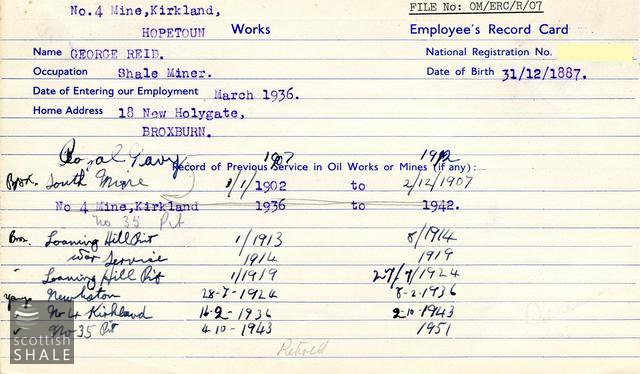 No.4 Mine,Kirkland, FILE No: OM/ERC/R/07
HOPETOUN Works Employee's Record Card
Name GEORGE REID. National Registration No.
Occupation Shale Miner. Date of Birth 31/12/1887.
Date of Entering our Employment March 1936.
Home Address 18 New Holygate,
BROXBURN.
Royal Navy 1907 1912
Record of Previous Service in Oil Works or Mines (if any):
Brox. South Mine 1/1/1902 to 2/12/1907
No 4 Mine,Kirkland 1936 to 1942.
No 35 Pit
Brox. Loaning Hill Pit 1/1913 8/1914
War Service 1914 1919
" Loaning Hill Pit 1/1919 27/7/1924
Newliston 28-7-1924 8-2-1936
No 4 Kirkland 14-2-1936 2-10-1943
No 35 Pit 4-10-1943 1951
Retired
scottish
SHALE